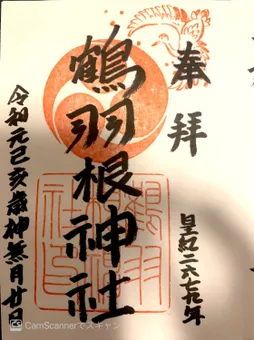 奉拝
皇紀二六七九年
鶴羽根神社
令和元己亥歳神無月廿日
CamScannerでスキャン